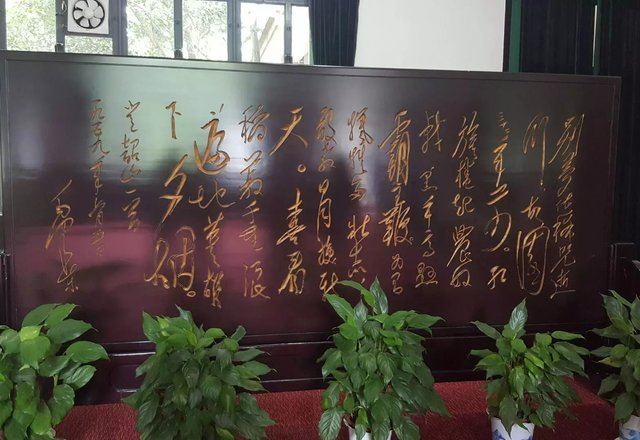 別夢依稀咒逝
川故園
三十二年前。红
旗捲起農奴
戟黑手高懸
霸主鞭。为有
犧牲多壮志
敢教日月換新
天。喜看
稻菽千重浪
遍地英雄
下夕烟。
韶山一首
一九五九年六月
毛泽东